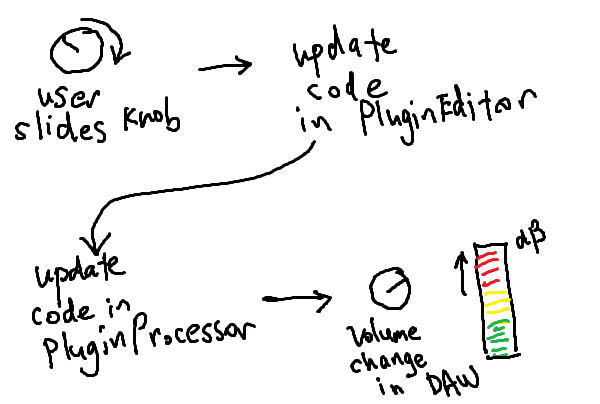 user
slides knob
update
code
in PluginEditor
update
code in
PluginProcessor
volume
change
in DAW
αβ